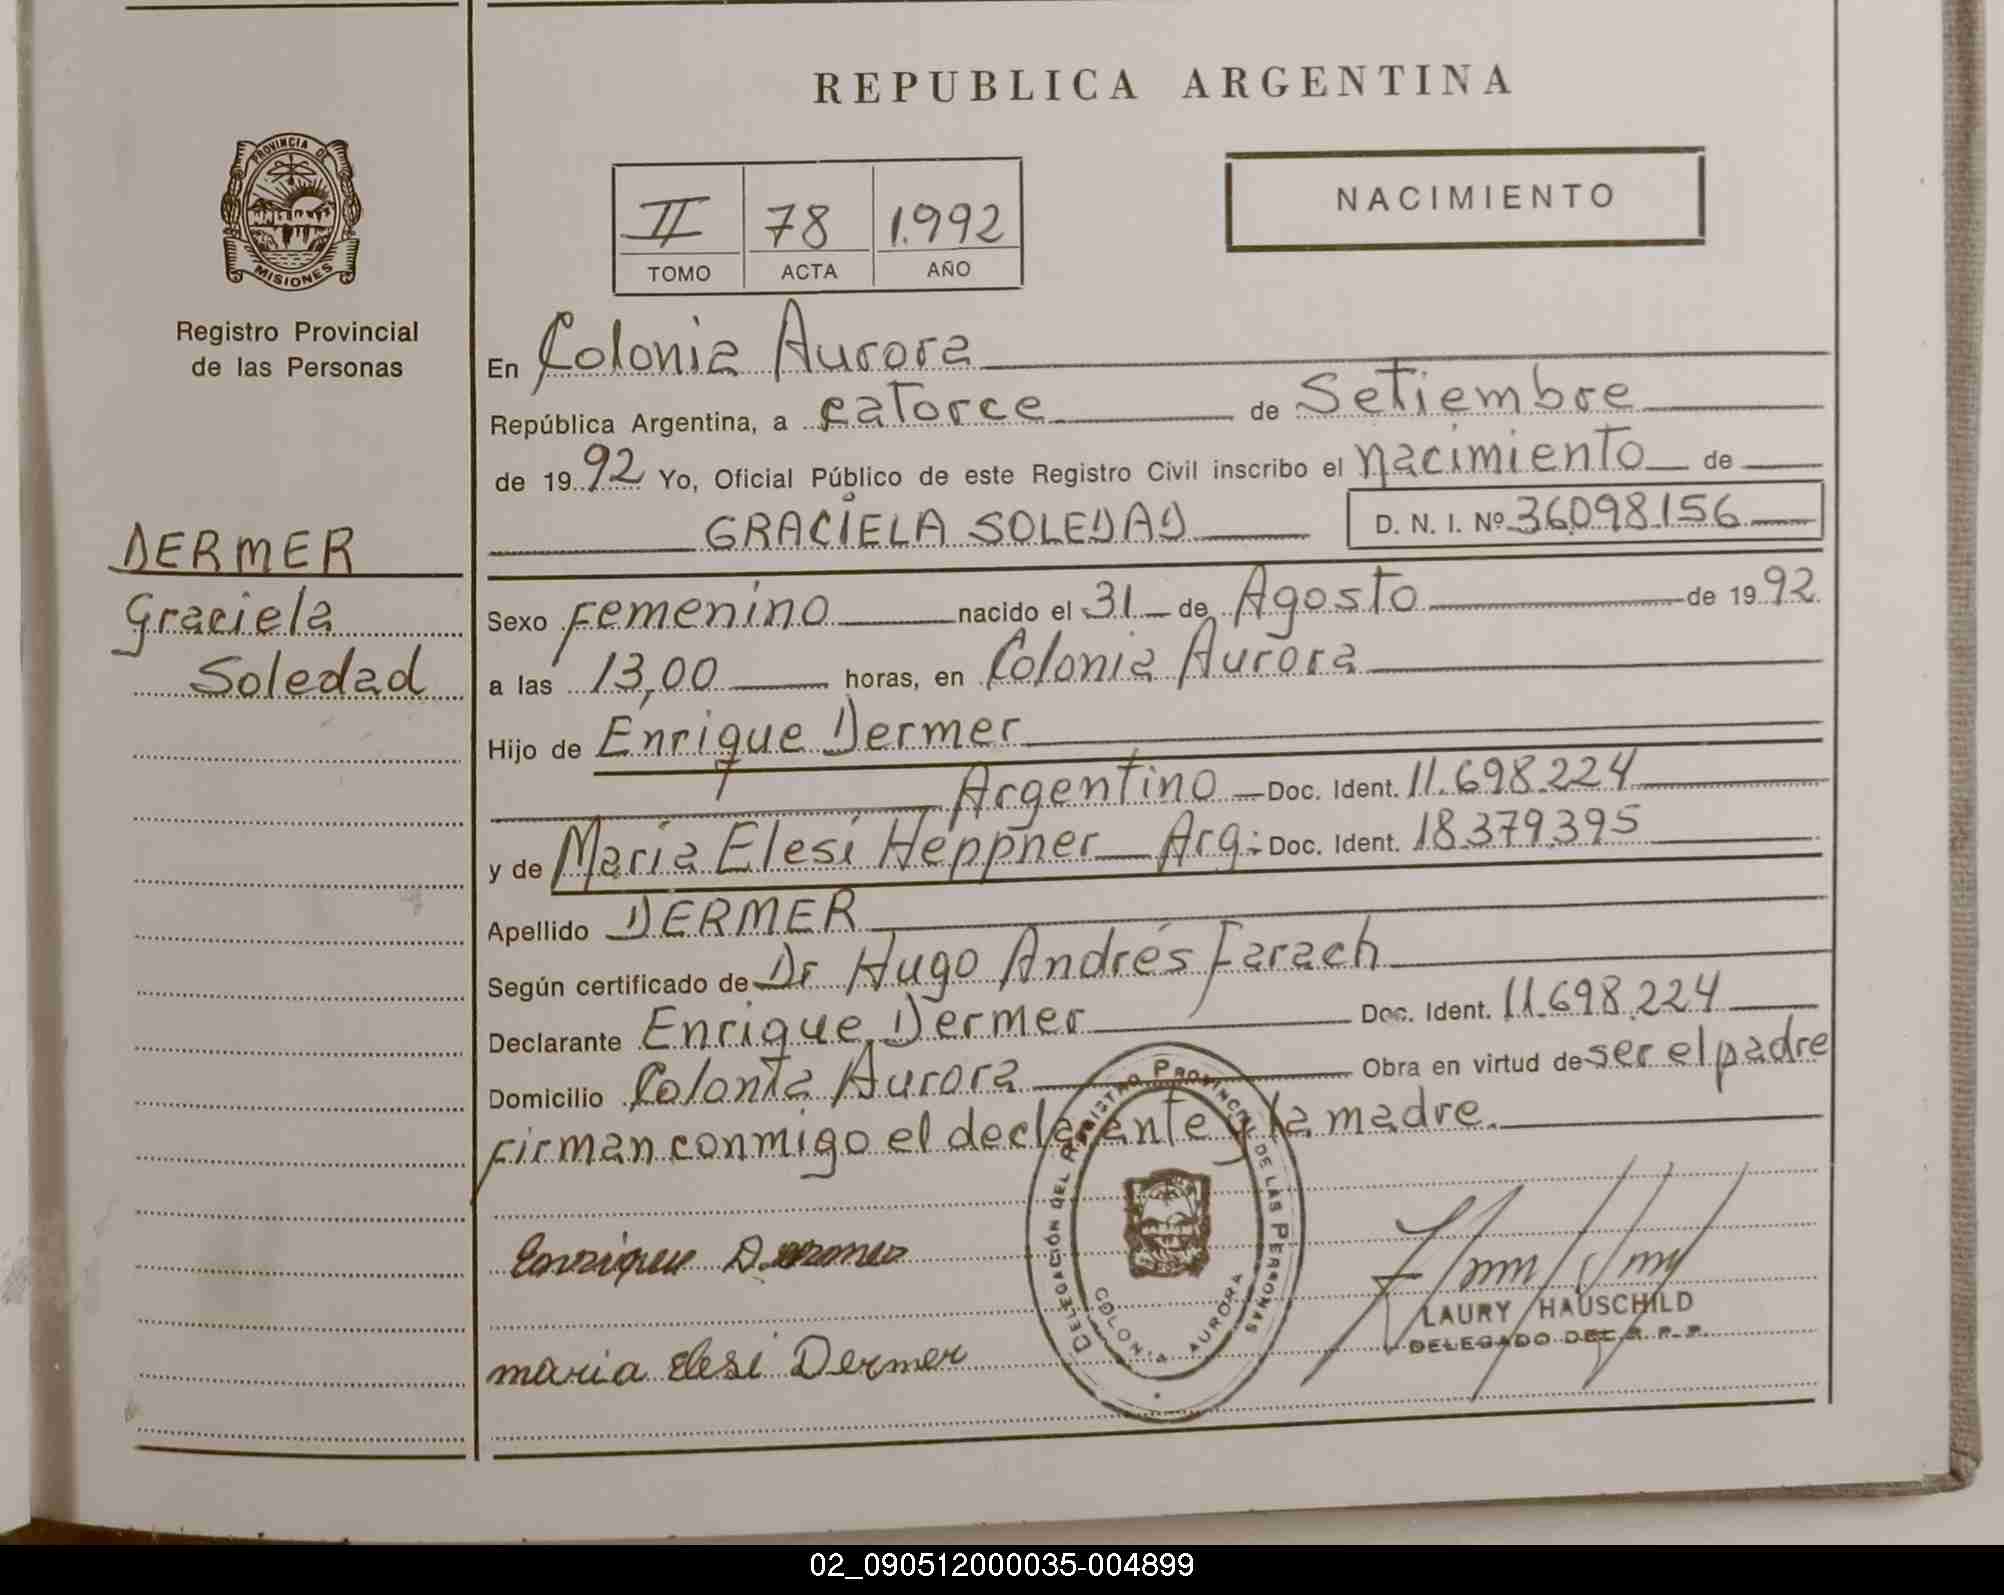 REPUBLICA ARGENTINA
PROVINCIA DE
MISIONES
Registro Provincial
de las Personas
II 78 1.992
TOMO ACTA AÑO
NACIMIENTO
En Colonia Aurora
República Argentina, a catorce de Setiembre
de 1992 Yo, Oficial Público de este Registro Civil inscribo el nacimiento de
GRACIELA SOLEDAD D. N. I. Nº 36.098.156
DERMER
Graciela
Soledad
Sexo femenino nacido el 31 de Agosto de 1992
a las 13,00 horas, en Colonia Aurora
Hijo de Enrique Dermer
Argentino Doc. Ident. 11.698.224
y de Maria Elesi Heppner Arg: Doc. Ident. 18.379.395
Apellido DERMER
Según certificado de Dr Hugo Andrés Farach
Declarante Enrique Dermer Doc. Ident. 11.698.224
Domicilio Colonia Aurora Obra en virtud de ser el padre
firman conmigo el declarante y la madre.
Enrique Dermer
maria Elesi Dermer
DELEGACIÓN DEL REGISTRO PROVINCIAL DE LAS PERSONAS
COLONIA AURORA
LAURY HAUSCHILD
DELEGADO DEL R. P. P.
02_090512000035-004899